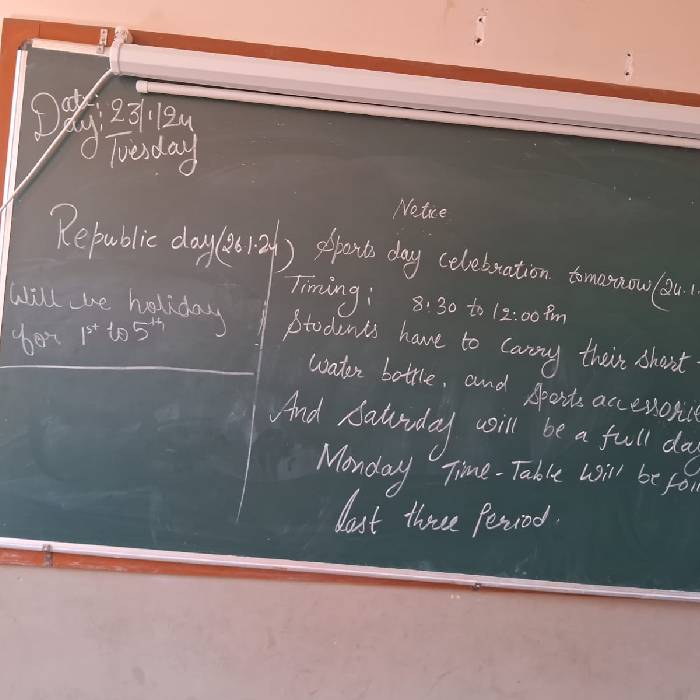 Date: 23/1/24
Day: Tuesday
Republic day (26.1.24)
Will be holiday
for 1st to 5th
Notice
Sports day celebration tomarrow (24.1.
Timing: 8:30 to 12:00 Pm
Students have to carry their
water bottle, and Sports
And Saturday will be a full day
Monday Time-Table will be
last three Period.